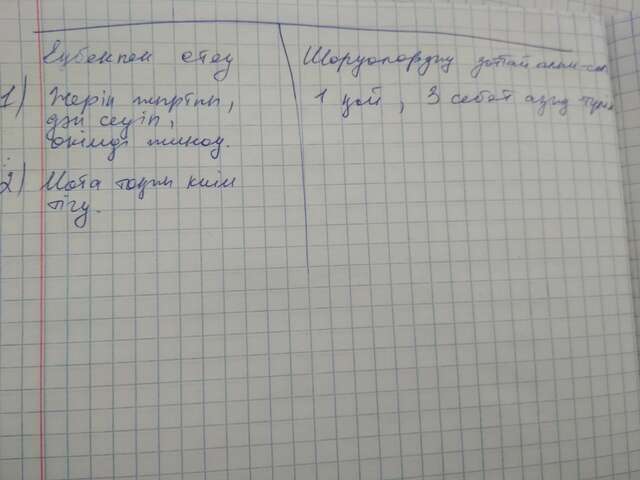 Еңбекпен өтеу
Шаруалардың заттай алым-са
1) Жерін жыртып,
дән сеуіп,
өнімді жинау.
1 қой, 3 себет ауыл
2) Мата тоқып киім
тігу.